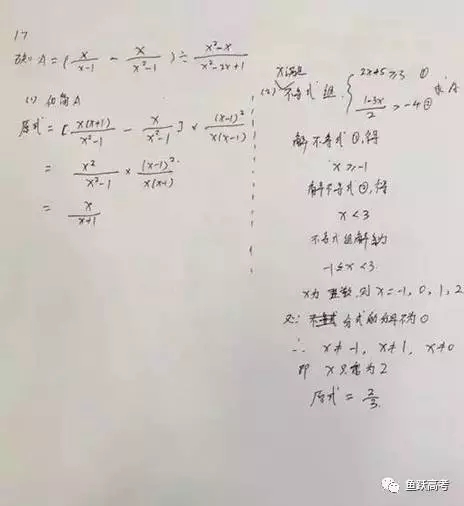 17
已知 A = (x/(x-1) - x/(x²-1)) ÷ (x²-x)/(x²-2x+1)
(1) 化简A
原式 = [x(x+1)/(x²-1) - x/(x²-1)] × (x-1)²/(x(x-1))
= x²/(x²-1) × (x-1)²/(x(x-1))
= x/(x+1)
x满足
(2) 不等式组 { 2x+5≥3 ①
(1-3x)/2 > -4 ② 求A
解不等式①,得
x ≥ -1
解不等式②,得
x < 3
不等式组解为
-1 ≤ x < 3
x为整数,则 x = -1, 0, 1, 2
又∵ 分式的分母不为0
∴ x ≠ -1, x ≠ 1, x ≠ 0
即 x只为2
原式 = 2/3
鱼跃高考